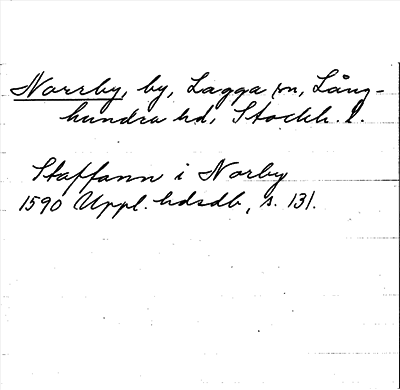 Norrby, by, Lagga sn, Lång-
hundra hd, Stockh. l.
Staffann i Norby
1590 Uppl. hdsdb, s. 131.